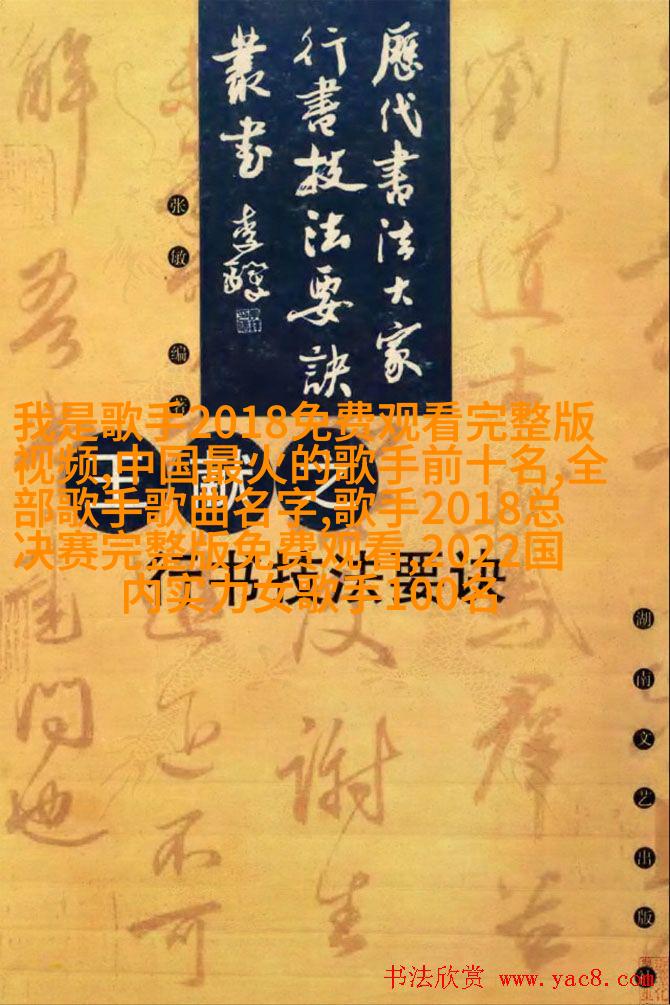 歷代書法大家
行書技法要訣
叢書
李鐸
张敏编著
我是歌手2018免费观看完整版
视频,中国最火的歌手前十名,全
部歌手歌曲名字,歌手2018总
决赛完整版免费观看,2022国
内实力女歌手100名
王献之
行书技法要诀
劉道士鵝群並
謝生
不可
問也
湖南文艺出版社
书法欣赏 www.yac8.com